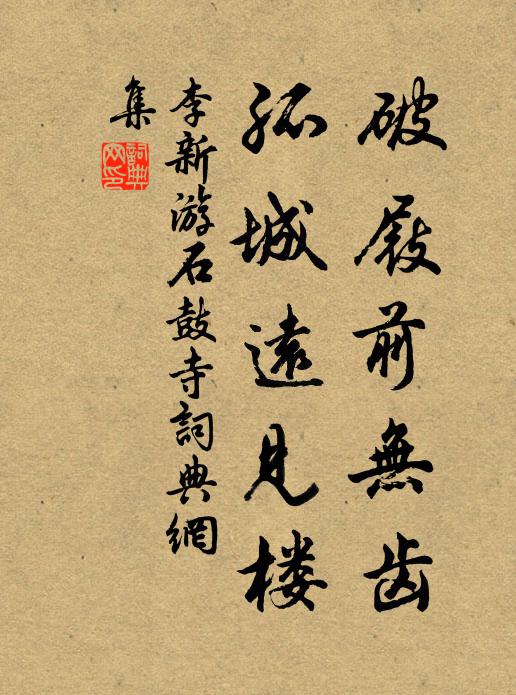 破屐前無齿
孤城遠見楼
李新游石鼓寺詞典網
集
詞典網印